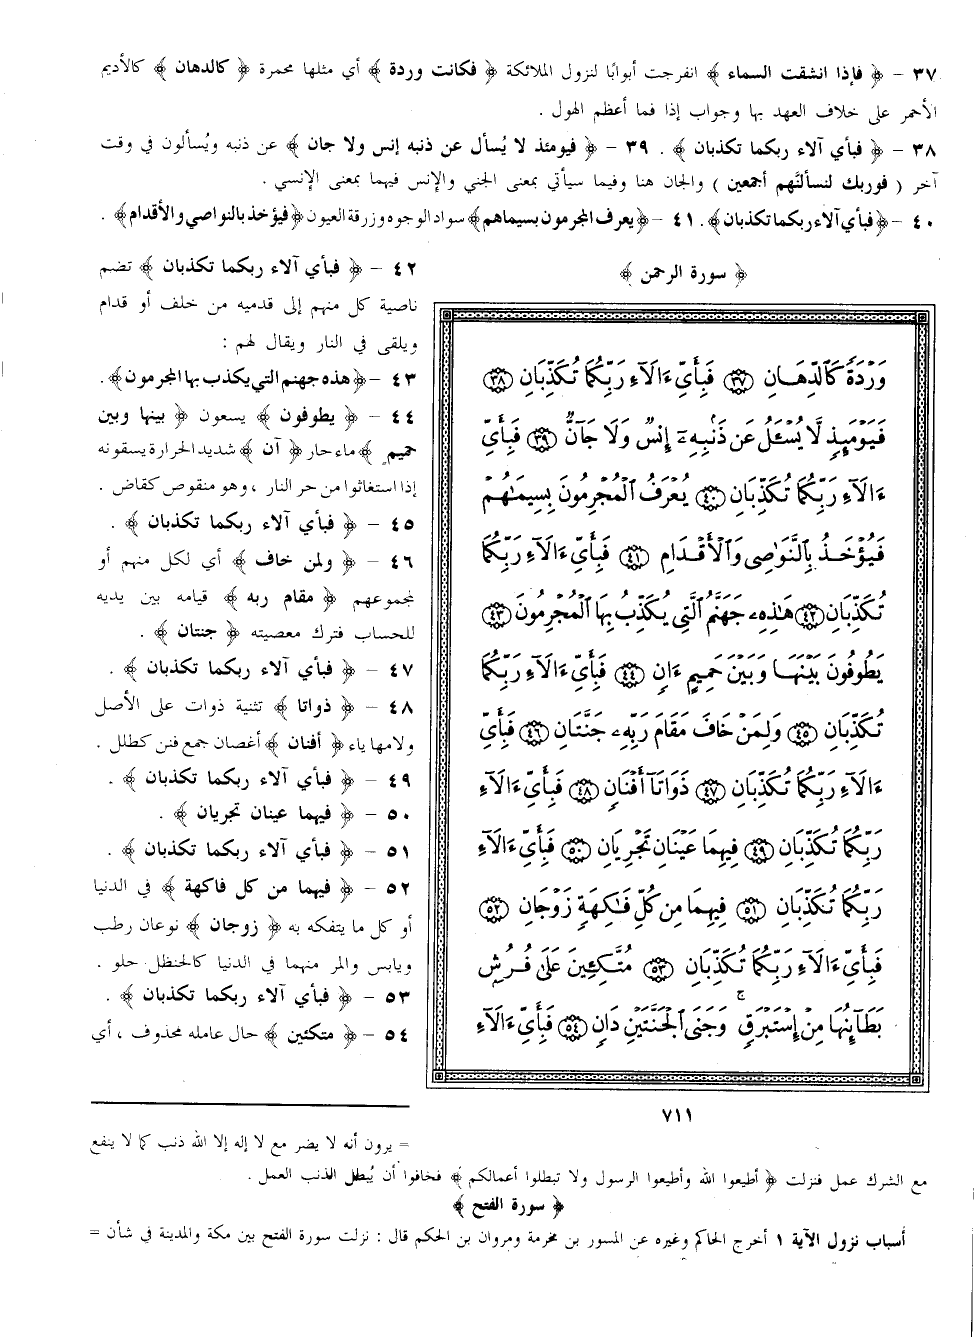 ٣٧ – ﴿ فإذا انشقت السماء ﴾ انفرجت أبوابًا لنزول الملائكة ﴿ فكانت وردة ﴾ أي مثلها محمرة ﴿ كالدهان ﴾ كالأديم
الأحمر على خلاف العهد بها وجواب إذا فما أعظم الهول .
٣٨ – ﴿ فبأي آلاء ربكما تكذبان ﴾ . ٣٩ – ﴿ فيومئذ لا يُسأل عن ذنبه إنس ولا جان ﴾ عن ذنبه ويُسألون في وقت
آخر ( فوربك لنسألنَّهم أجمعين ) والجان هنا وفيما سيأتي بمعنى الجني والإنس فيهما بمعنى الإنسي .
٤٠ – ﴿ فبأي آلاء ربكما تكذبان ﴾. ٤١ – ﴿ يعرف المجرمون بسيماهم ﴾ سواد الوجوه وزرقة العيون ﴿ فيؤخذ بالنواصي والأقدام ﴾ .
﴿ سورة الرحمن ﴾
وَرْدَةً كَالدِّهَانِ ٣٧ فَبِأَيِّ ءَالَآءِ رَبِّكُمَا تُكَذِّبَانِ ٣٨
فَيَوْمَئِذٍ لَّا يُسْـَٔلُ عَن ذَنۢبِهِۦٓ إِنسٌ وَلَا جَآنٌّ ٣٩ فَبِأَيِّ
ءَالَآءِ رَبِّكُمَا تُكَذِّبَانِ ٤٠ يُعْرَفُ ٱلْمُجْرِمُونَ بِسِيمَٰهُمْ
فَيُؤْخَذُ بِٱلنَّوَٰصِى وَٱلْأَقْدَامِ ٤١ فَبِأَيِّ ءَالَآءِ رَبِّكُمَا
تُكَذِّبَانِ ٤٢ هَٰذِهِۦ جَهَنَّمُ ٱلَّتِى يُكَذِّبُ بِهَا ٱلْمُجْرِمُونَ ٤٣
يَطُوفُونَ بَيْنَهَا وَبَيْنَ حَمِيمٍ ءَانٍ ٤٤ فَبِأَيِّ ءَالَآءِ رَبِّكُمَا
تُكَذِّبَانِ ٤٥ وَلِمَنْ خَافَ مَقَامَ رَبِّهِۦ جَنَّتَانِ ٤٦ فَبِأَيِّ
ءَالَآءِ رَبِّكُمَا تُكَذِّبَانِ ٤٧ ذَوَاتَآ أَفْنَانٍ ٤٨ فَبِأَيِّ ءَالَآءِ
رَبِّكُمَا تُكَذِّبَانِ ٤٩ فِيهِمَا عَيْنَانِ تَجْرِيَانِ ٥٠ فَبِأَيِّ ءَالَآءِ
رَبِّكُمَا تُكَذِّبَانِ ٥١ فِيهِمَا مِن كُلِّ فَٰكِهَةٍ زَوْجَانِ ٥٢
فَبِأَيِّ ءَالَآءِ رَبِّكُمَا تُكَذِّبَانِ ٥٣ مُتَّكِـِٔينَ عَلَىٰ فُرُشٍۭ
بَطَآئِنُهَا مِنْ إِسْتَبْرَقٍ ۚ وَجَنَى ٱلْجَنَّتَيْنِ دَانٍ ٥٤ فَبِأَيِّ ءَالَآءِ
٧١١
٤٢ – ﴿ فبأي آلاء ربكما تكذبان ﴾ تضم
ناصية كل منهم إلى قدميه من خلف أو قدام
ويلقى في النار ويقال لهم :
٤٣ – ﴿ هذه جهنم التي يكذب بها المجرمون ﴾ .
٤٤ – ﴿ يطوفون ﴾ يسعون ﴿ بينها وبين
حميم ﴾ ماء حار ﴿ آن ﴾ شديد الحرارة يسقونه
إذا استغاثوا من حر النار ، وهو منقوص كقاض .
٤٥ – ﴿ فبأي آلاء ربكما تكذبان ﴾ .
٤٦ – ﴿ ولمن خاف ﴾ أي لكل منهم أو
لمجموعهم ﴿ مقام ربه ﴾ قيامه بين يديه
للحساب فترك معصيته ﴿ جنتان ﴾ .
٤٧ – ﴿ فبأي آلاء ربكما تكذبان ﴾ .
٤٨ – ﴿ ذواتا ﴾ تثنية ذوات على الأصل
ولامها ياء ﴿ أفنان ﴾ أغصان جمع فنن كطلل .
٤٩ – ﴿ فبأي آلاء ربكما تكذبان ﴾ .
٥٠ – ﴿ فيهما عينان تجريان ﴾ .
٥١ – ﴿ فبأي آلاء ربكما تكذبان ﴾ .
٥٢ – ﴿ فيهما من كل فاكهة ﴾ في الدنيا
أو كل ما يتفكه به ﴿ زوجان ﴾ نوعان رطب
ويابس والمر منهما في الدنيا كالحنظل حلو .
٥٣ – ﴿ فبأي آلاء ربكما تكذبان ﴾ .
٥٤ – ﴿ متكئين ﴾ حال عامله محذوف ، أي
= يرون أنه لا يضر مع لا إله إلا الله ذنب كما لا ينفع
مع الشرك عمل فنزلت ﴿ أطيعوا الله وأطيعوا الرسول ولا تبطلوا أعمالكم ﴾ فخافوا أن يُبطل الذنب العمل .
﴿ سورة الفتح ﴾
أسباب نزول الآية ١ أخرج الحاكم وغيره عن المسور بن مخرمة ومروان بن الحكم قال : نزلت سورة الفتح بين مكة والمدينة في شأن =